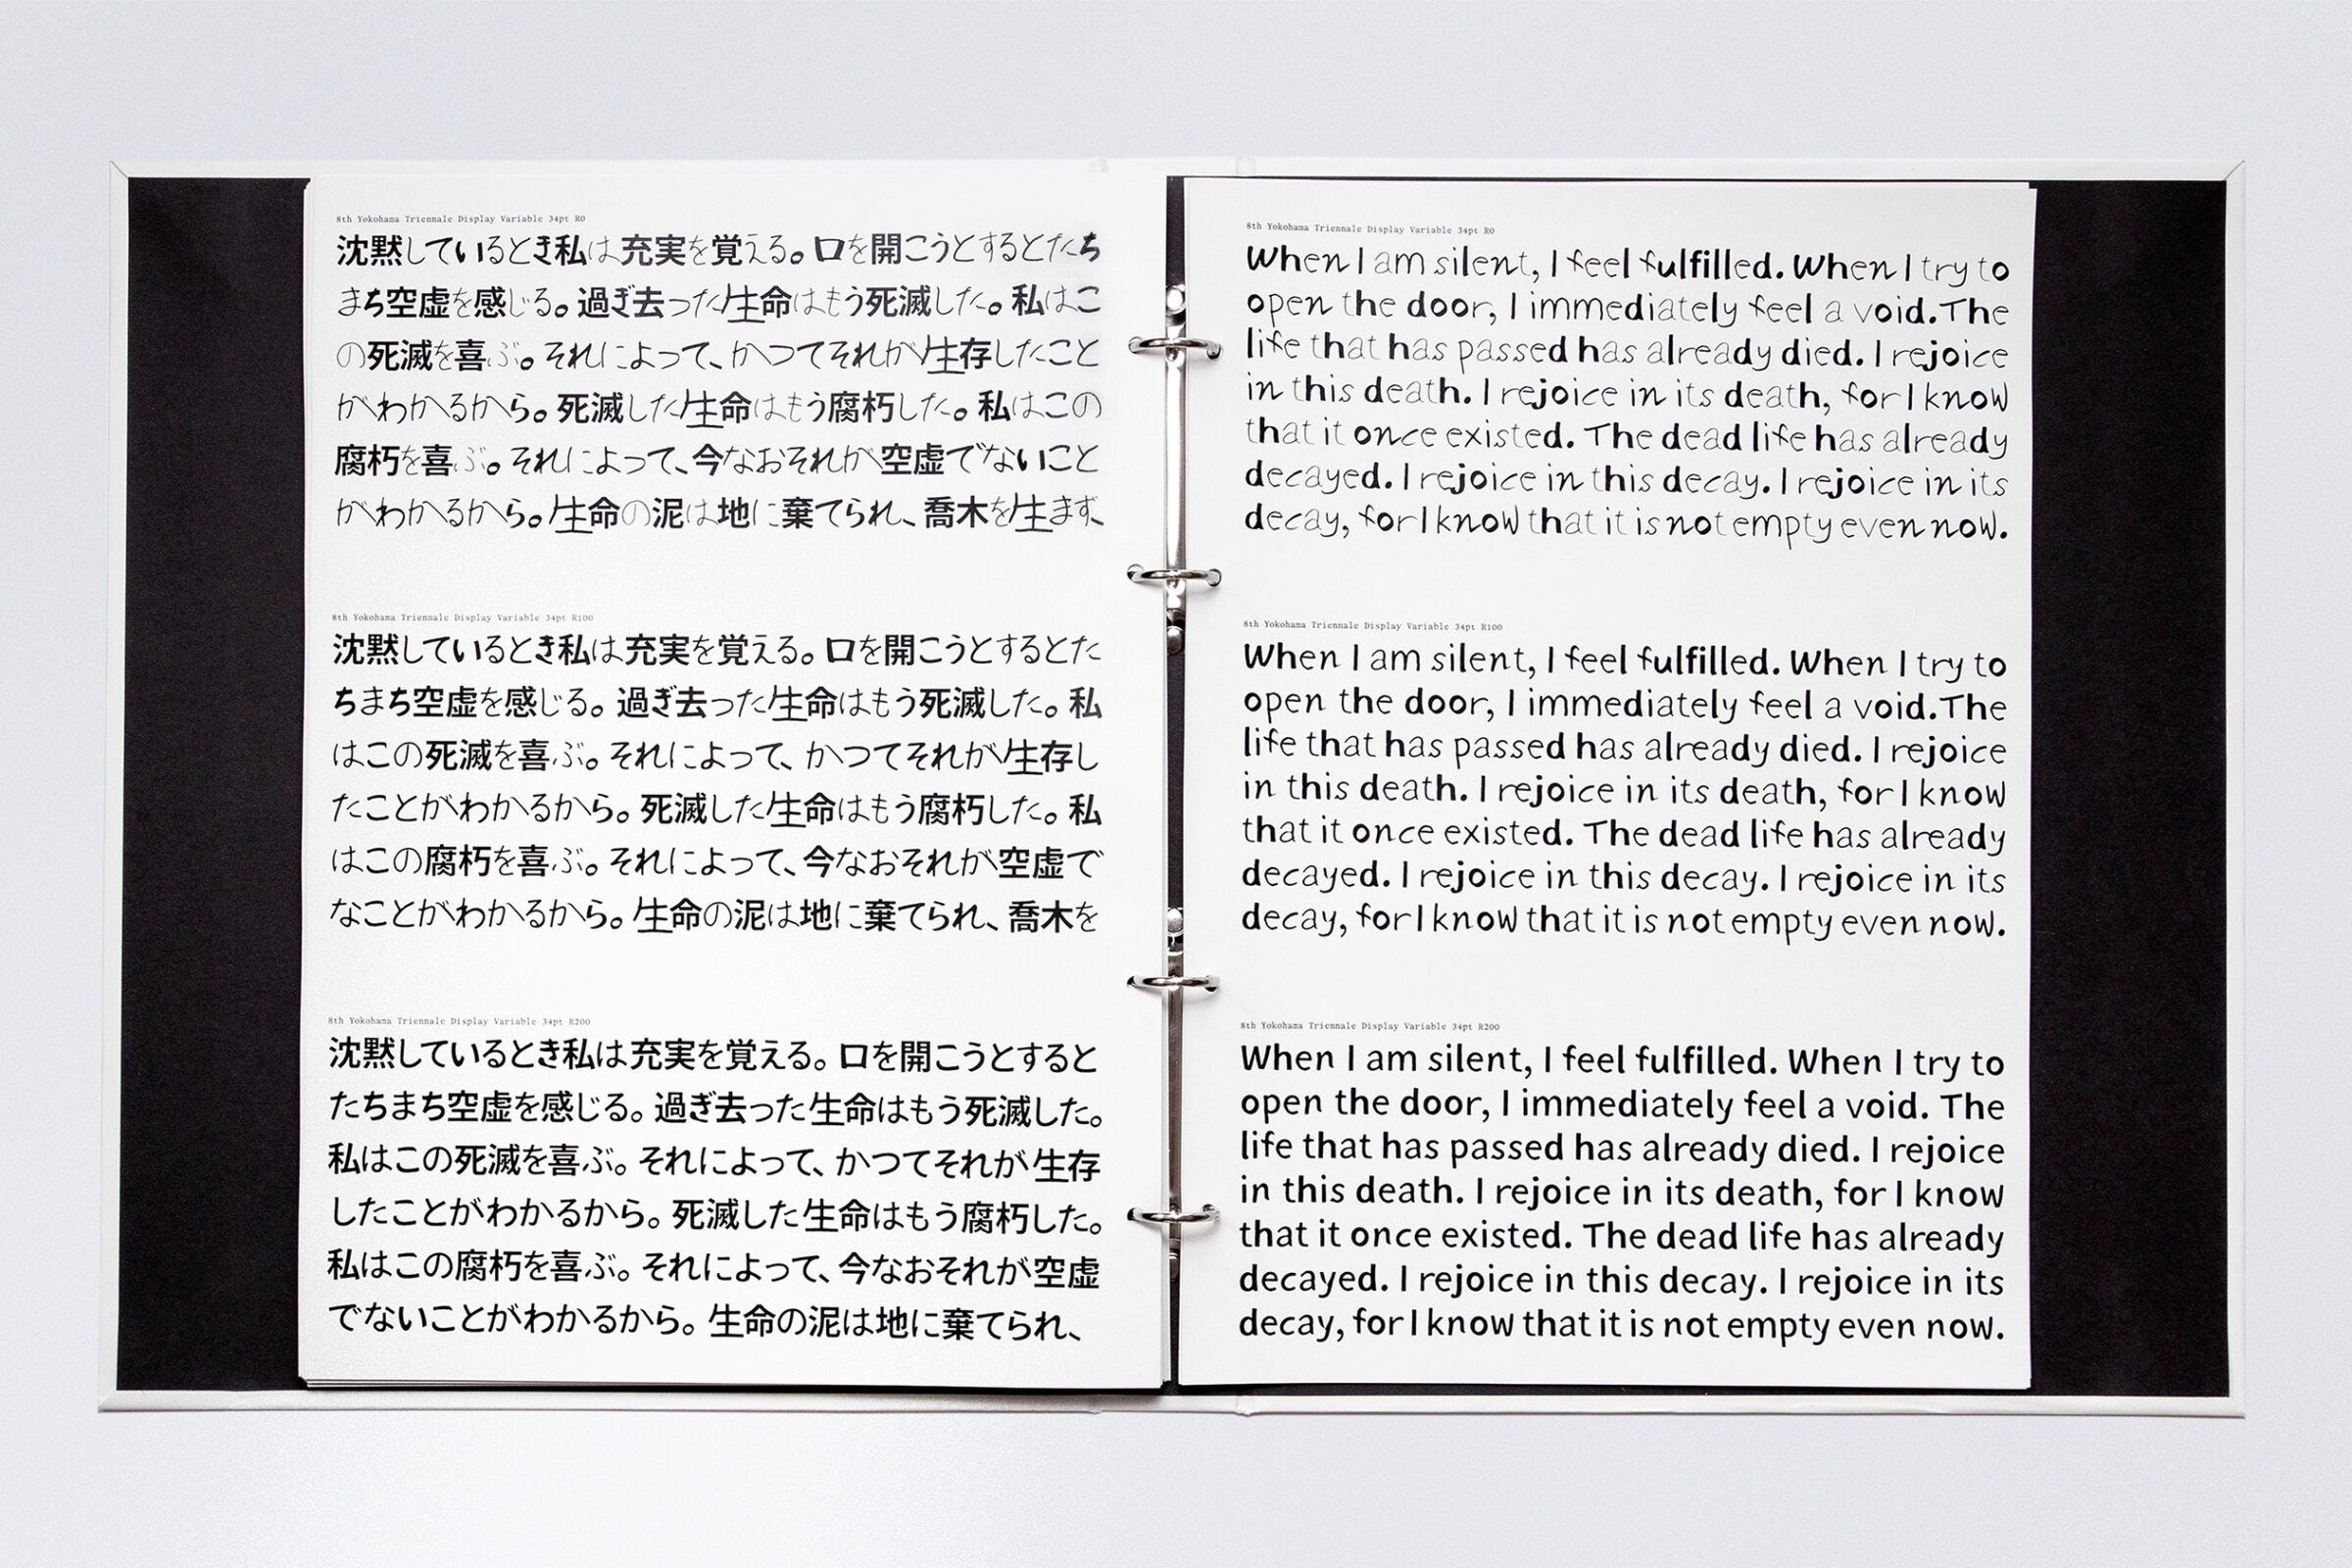 8th Yokohama Triennale Display Variable 34pt R0
沈黙しているとき私は充実を覚える。口を開こうとするとたち
まち空虚を感じる。過ぎ去った生命はもう死滅した。私はこ
の死滅を喜ぶ。それによって、かつてそれが生存したこと
がわかるから。死滅した生命はもう腐朽した。私はこの
腐朽を喜ぶ。それによって、今なおそれが空虚でないこと
がわかるから。生命の泥は地に棄てられ、喬木を生まず、
8th Yokohama Triennale Display Variable 34pt R100
沈黙しているとき私は充実を覚える。口を開こうとするとた
ちまち空虚を感じる。過ぎ去った生命はもう死滅した。私
はこの死滅を喜ぶ。それによって、かつてそれが生存し
たことがわかるから。死滅した生命はもう腐朽した。私
はこの腐朽を喜ぶ。それによって、今なおそれが空虚で
なことがわかるから。生命の泥は地に棄てられ、喬木を
8th Yokohama Triennale Display Variable 34pt R200
沈黙しているとき私は充実を覚える。口を開こうとすると
たちまち空虚を感じる。過ぎ去った生命はもう死滅した。
私はこの死滅を喜ぶ。それによって、かつてそれが生存
したことがわかるから。死滅した生命はもう腐朽した。
私はこの腐朽を喜ぶ。それによって、今なおそれが空虚
でないことがわかるから。生命の泥は地に棄てられ、
8th Yokohama Triennale Display Variable 34pt R0
When I am silent, I feel fulfilled. When I try to
open the door, I immediately feel a void. The
life that has passed has already died. I rejoice
in this death. I rejoice in its death, for I know
that it once existed. The dead life has already
decayed. I rejoice in this decay. I rejoice in its
decay, for I know that it is not empty even now.
8th Yokohama Triennale Display Variable 34pt R100
When I am silent, I feel fulfilled. When I try to
open the door, I immediately feel a void. The
life that has passed has already died. I rejoice
in this death. I rejoice in its death, for I know
that it once existed. The dead life has already
decayed. I rejoice in this decay. I rejoice in its
decay, for I know that it is not empty even now.
8th Yokohama Triennale Display Variable 34pt R200
When I am silent, I feel fulfilled. When I try to
open the door, I immediately feel a void. The
life that has passed has already died. I rejoice
in this death. I rejoice in its death, for I know
that it once existed. The dead life has already
decayed. I rejoice in this decay. I rejoice in its
decay, for I know that it is not empty even now.